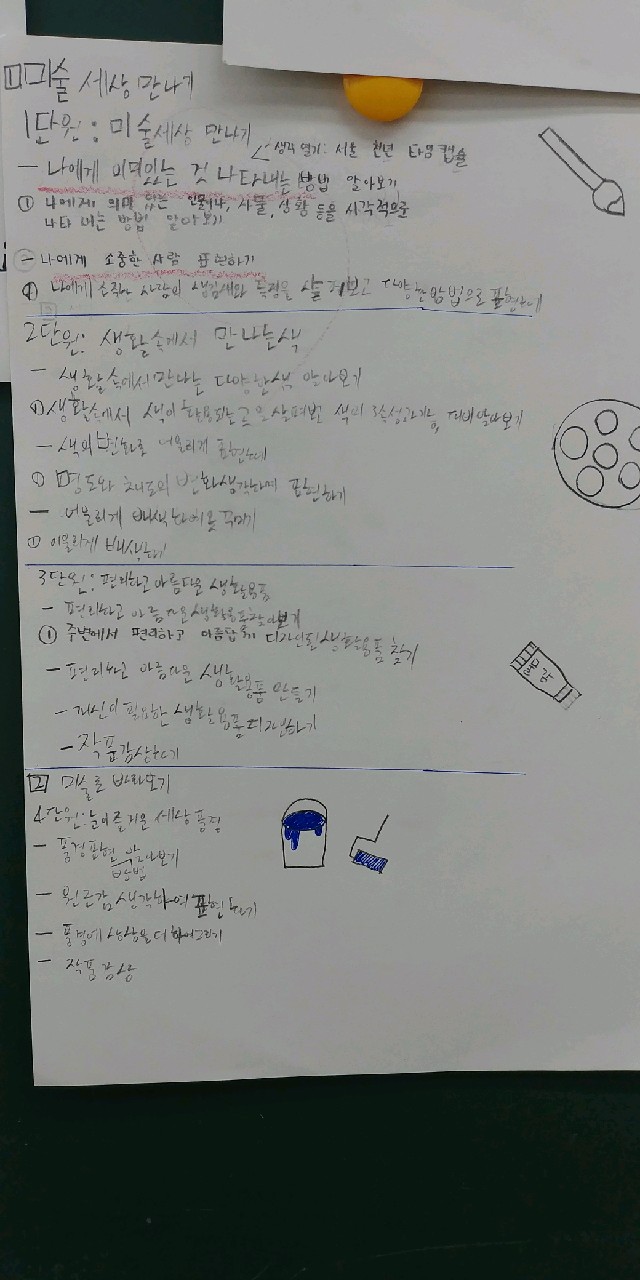 1 미술 세상 만나기
1단원 : 미술세상 만나기
생각 열기 : 서울 천년 타임 캡슐
- 나에게 의미있는 것 나타내는 방법 알아보기
① 나에게 의미 있는 인물이나, 사물, 상황 등을 시각적으로
나타 내는 방법 알아보기
- 나에게 소중한 사람 표현하기
① 나에게 소중한 사람의 생김새와 특징을 살펴보고 다양한 방법으로 표현하기
2단원: 생활속에서 만나는색
- 생활속에서 만나는 다양한색 알아보기
① 생활속에서 색이 활용되는 살펴보고 색의 알아보기
- 색의 변화로 어울리게 표현하기
① 명도와 채도의 변화 생각하며 표현하기
- 어울리게 배색하여 옷 꾸미기
① 어울리게 배색하기
3단원 : 편리하고 아름다운 생활용품
- 편리하고 아름다운 생활용품 찾아보기
① 주변에서 편리하고 아름답게 디자인된 생활용품 찾기
- 편리하고 아름다운 생활용품 만들기
- 자신이 필요한 생활용품 디자인하기
- 작품감상하기
물감
2 미술로 바라보기
4단원: 눈이 즐거운 세상 풍경
- 풍경표현 방법 알아보기
- 원근감 생각하여 표현하기
- 풍경에 상상을 더하여 그리기
- 작품 감상